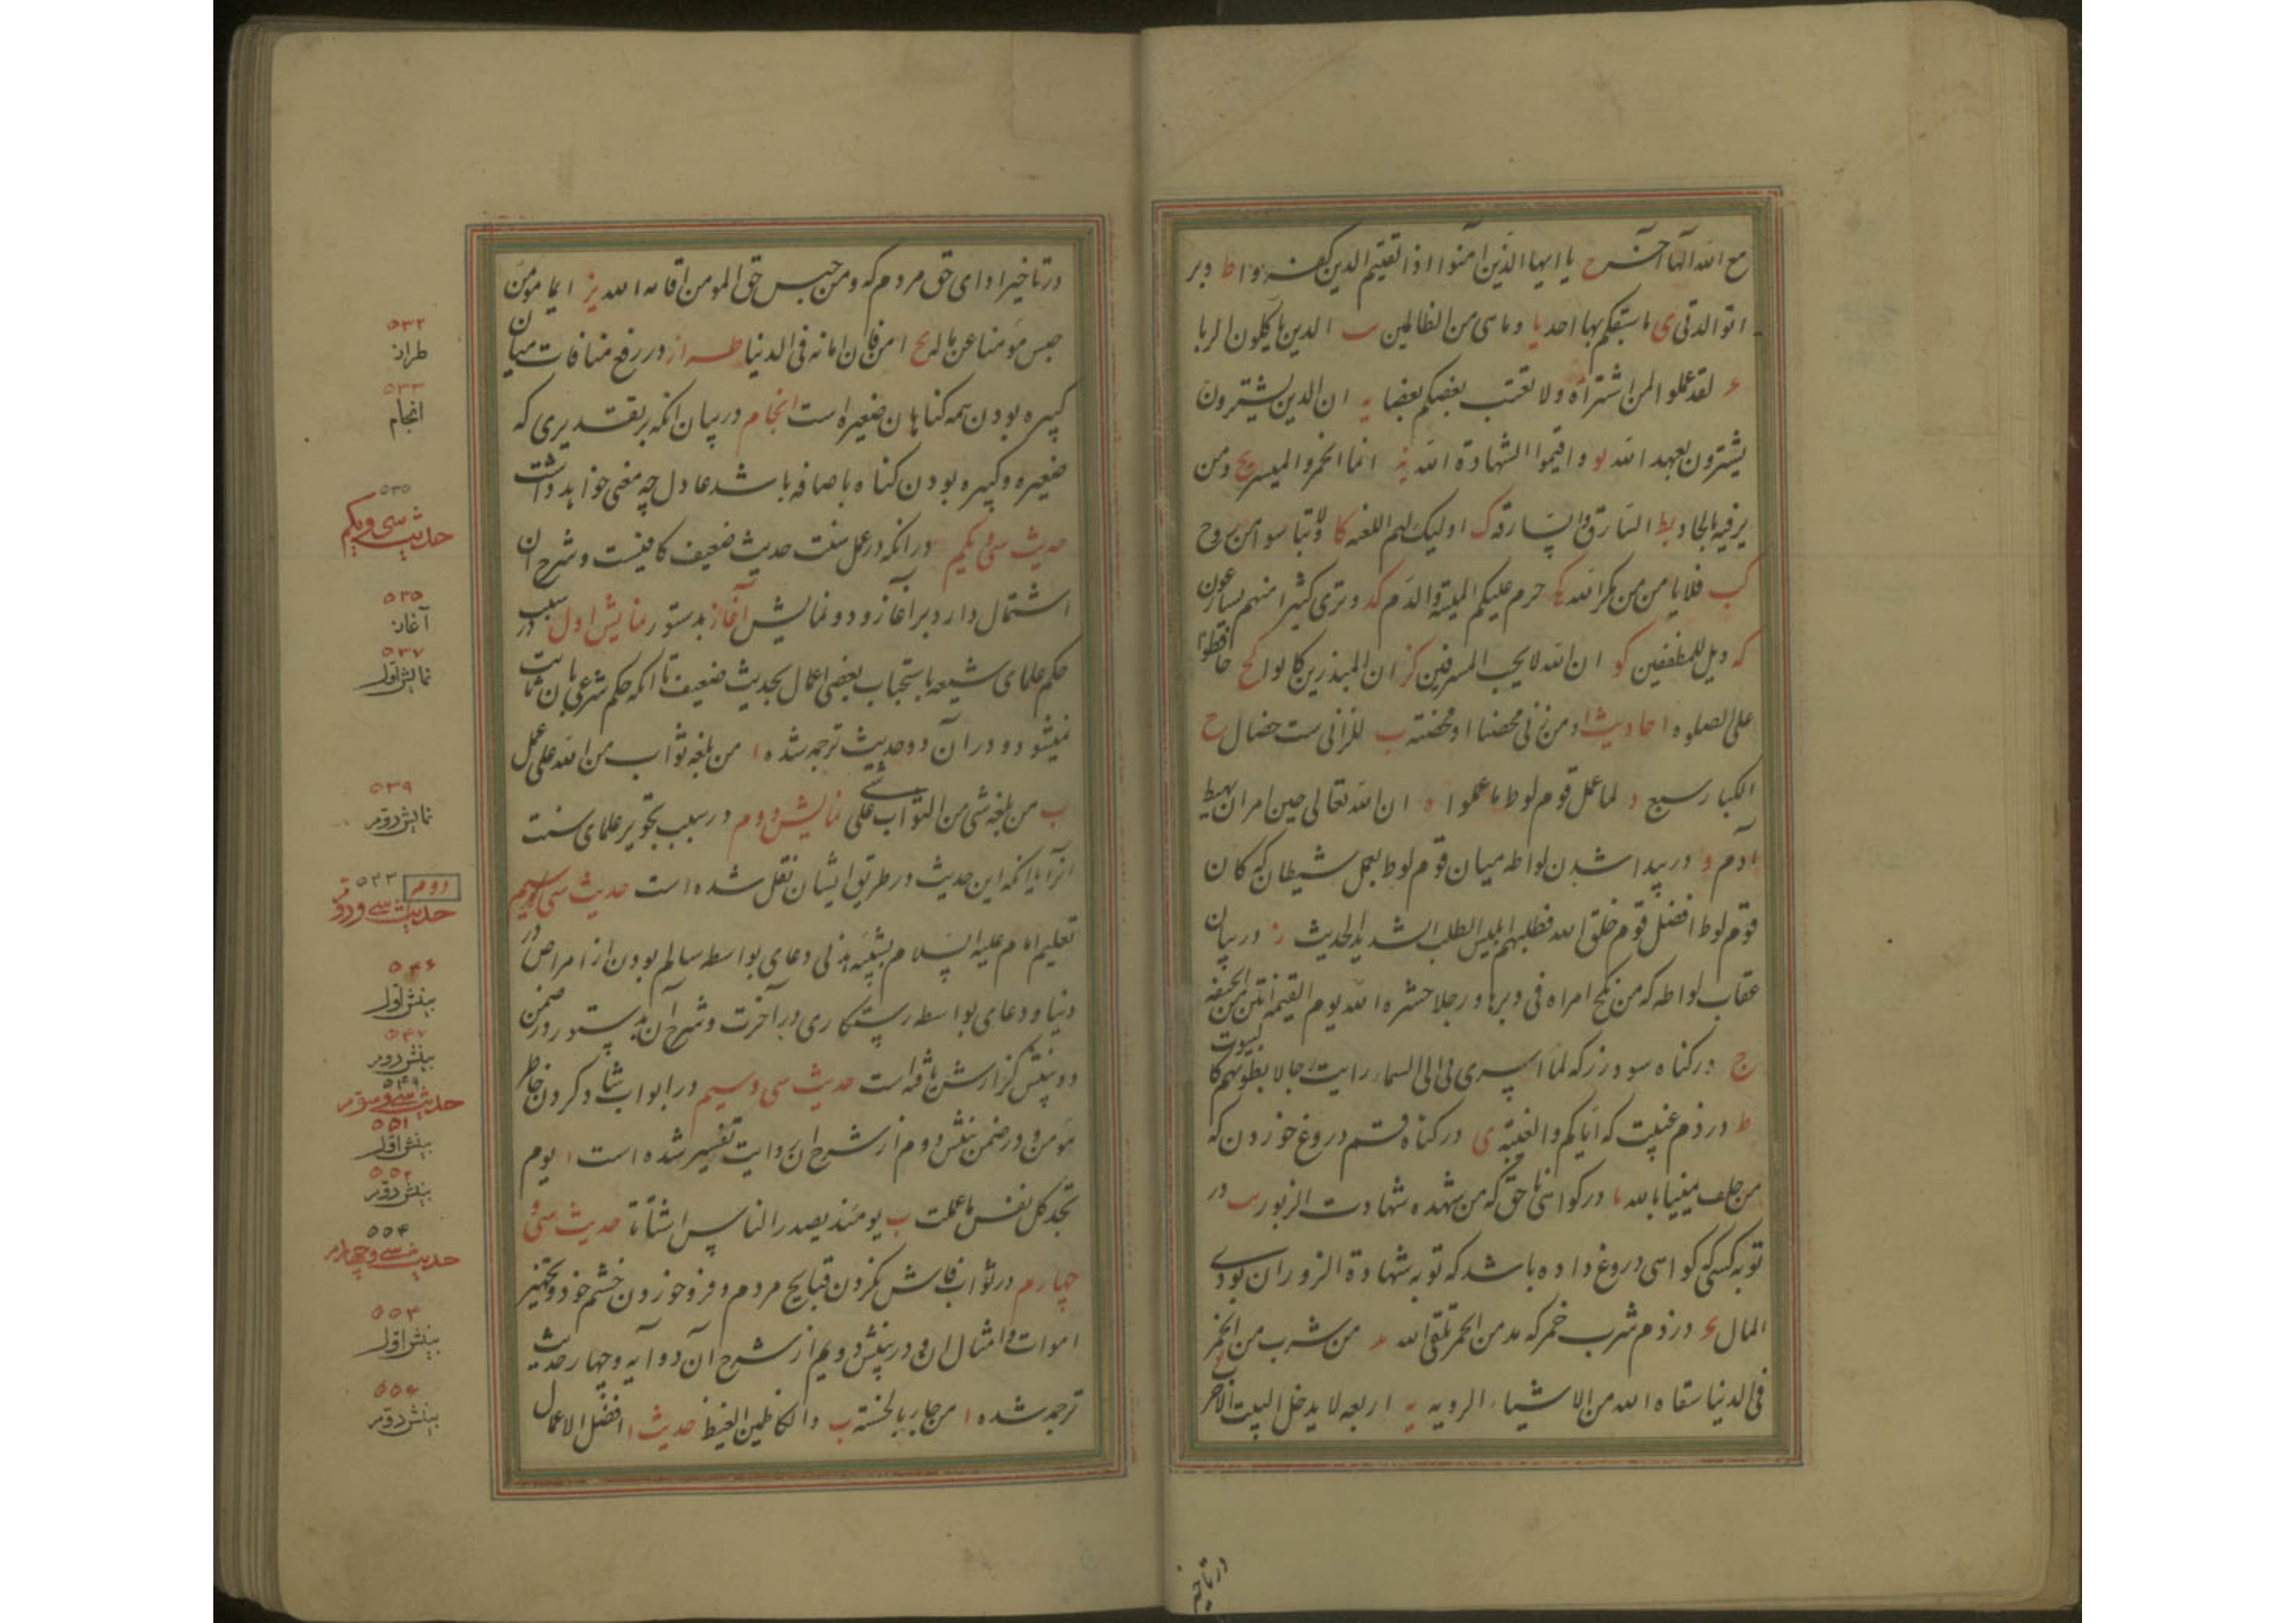 مع الله الها آخر ح یا ایها الذین آمنوا اذا لقیتم الذین کفروا ط و بر
اتوا لدتی ی ما سبقکم بها احد یا و ما هی من الظالمین یب الذین یاکلون الربا
لقد علموا لمن اشتراه ولا یغتب بعضکم بعضا یه ان الذین یشترون
یشترون بعهد الله یو و اقیموا الشهادة الله یز انما الخمر والمیسر یح و من
یرفیه بالحاد یط السارق والسارقه ک اولیک لهم اللعنه کا ولا تیاسوا من روح
کب فلا یامن من مکر الله کج حرم علیکم المیتة والدم کد وتری کثیرا منهم یسارعون
که ویل للمطففین کو ان الله لایحب المسرفین کز ان المبذرین کانوا کح حافظوا
علی الصلوه احادیث ا و من زنی محصنا او محصنته ب للزانی ست خصال ح
الکبار سبع د لما عمل قوم لوط ما عملوا ه ان الله تعالی حین امر ان یهبط
آدم و در پیدا شدن لواطه میان قوم لوط بعمل شیطان که کان
قوم لوط افضل قوم خلق الله فطلبهم ابلیس الطلب الشدید الحدیث ز در بیان
عقاب لواطه که من نکح امراه فی دبرها و رجلا حشره الله یوم القیمة انتن من الجیفه
ح در کناه سود و رز که لما اسری بی الی السماء رایت رجالا بطونهم کالبیوت
ط در ذم غیبت که ایاکم والغیبة ی در کناه قسم دروغ خوردن که
من حلف یمینا بالله یا در کواهی ناحق که من شهده شهادت الزور یب در
توبه کسی که کواهی دروغ داده باشد که توبه شهادة الزور ان یودی
المال یج در ذم شرب خمر که مدمن الخمر تلقی الله ید من شرب من الخمر
فی الدنیا سقاه الله من الاشیاء الرویه یه اربعه لا یدخل البیت
در تاخیر
در تاخیر ادای حق مردم که و من حبس حق المومن اقامه الله یز ایما مومن
حبس مؤمنا عن ماله یح امن فان امانه فی الدنیا طراز در رفع منافات میان
کبیره بودن همه کناهان صغیره است انجام در بیان انکه بر تقدیری که
صغیره و کبیره بودن کناه باضافه باشد عادل چه معنی خواهد داشت
حدیث سی و یکم در انکه در عمل سنت حدیث ضعیف کافیست و شرح ان
اشتمال دارد بر آغاز و دو نمایش آغاز بدستور نمایش اول در سبب
حکم علمای شیعه باستحباب بعضی اعمال بحدیث ضعیف تا انکه حکم شرعی بان ثابت
نمیشود و در آن دو حدیث ترجمه شده ا من بلغه ثواب من الله علی عمل
ب من بلغه شی من الثواب علی شی نمایش دوم در سبب تجویز علمای سنت
انرا با انکه این حدیث در طریق ایشان نقل شده است حدیث سی و دویم در
تعلیم امام علیه السلام بشیبه هذلی دعای بواسطه سالم بودن از امراض
دنیا و دعای بواسطه رستکاری در آخرت و شرح آن بدستور در ضمن
دو بینش کزارش یافته است حدیث سی و سیم در ابواب شاد کردن خاطر
مومن و در ضمن بینش دوم از شرح ان روایت تفسیر شده است ا یوم
تجد کل نفس ما عملت ب یومئذ یصدر الناس اشتاتا حدیث سی و
چهارم در ثواب فاش نکردن قبایح مردم و فرو خوردن خشم خود و تجهیز
اموات و امثال ان و در بینش دویم از شرح آن دو آیه و چهار حدیث
ترجمه شده ا من جاء بالحسنة ب والکاظمین الغیظ حدیث ا افضل الاعمال
۵۳۲
طراز
۵۳۳
انجام
۵۳۵
حدیث سی و یکم
۵۳۵
آغاز
۵۳۷
نمایش اول
۵۳۹
نمایش دوم
دوم
حدیث سی و دوم
۵۴۶
بینش اول
۵۴۷
بینش دوم
۵۴۹
حدیث سی و سوم
۵۵۱
بینش اول
۵۵۲
بینش دوم
۵۵۴
حدیث سی و چهارم
۵۵۳
بینش اول
۵۵۶
بینش دوم